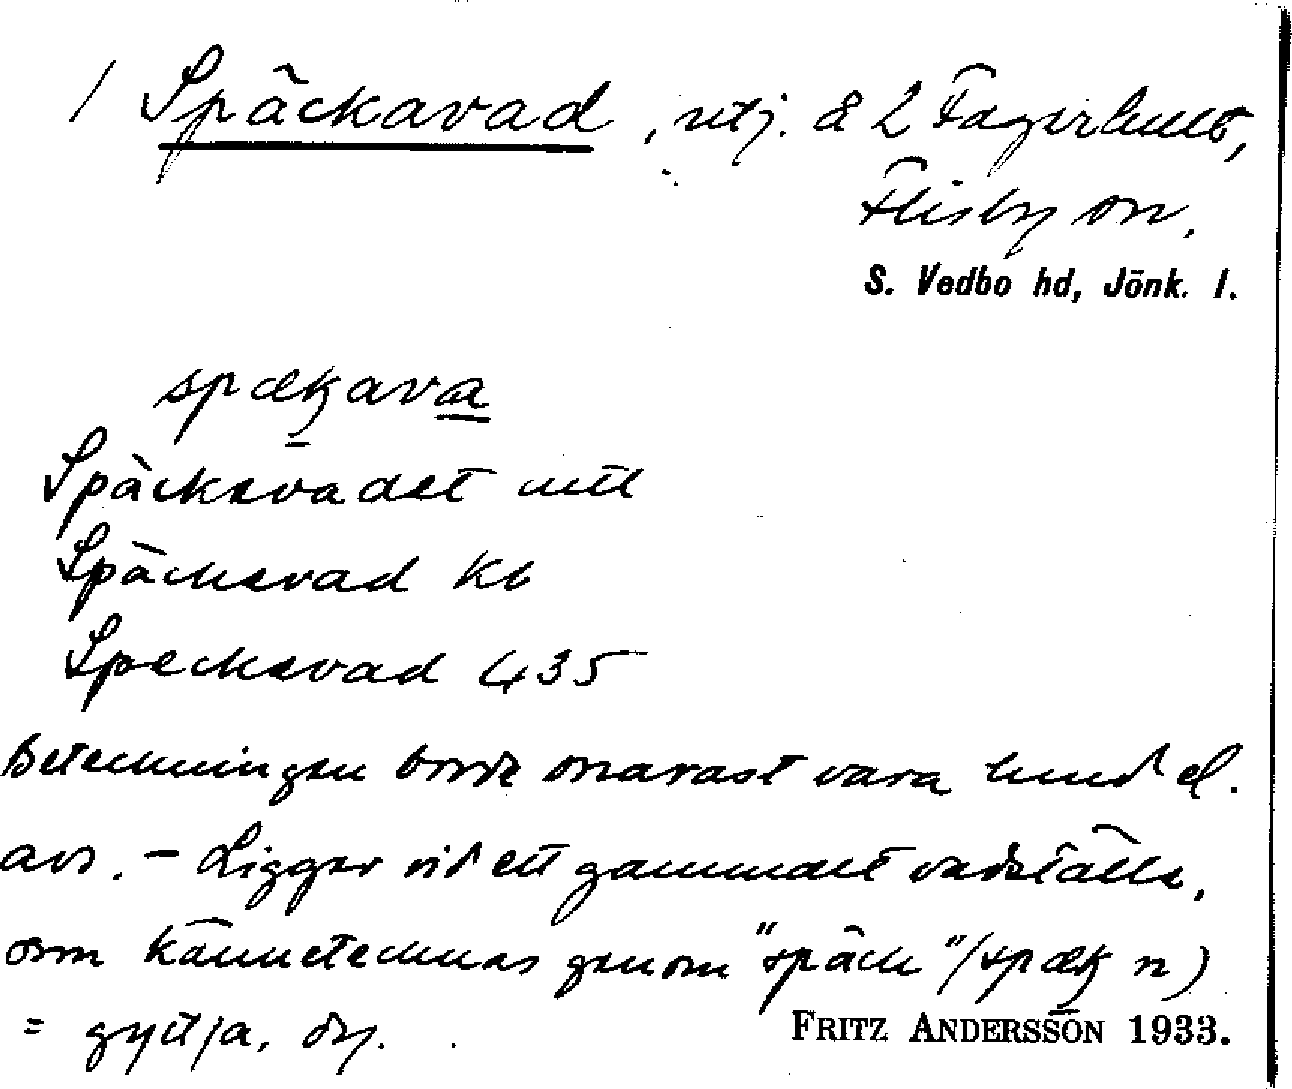 1 Späckavad, utj. å 2 Fagerhult,
Flisby sn.
S. Vedbo hd, Jönk. l.
spækava
Späckavadet uttl
Späckavad Kb
Speckavad 435
Beteckningen borde snarast vara hund el.
avs. – Ligger vid ett gammalt vadställe,
som kännetecknas genom "späck" (spæk n)
= gyttja, dy.
FRITZ ANDERSSON 1933.